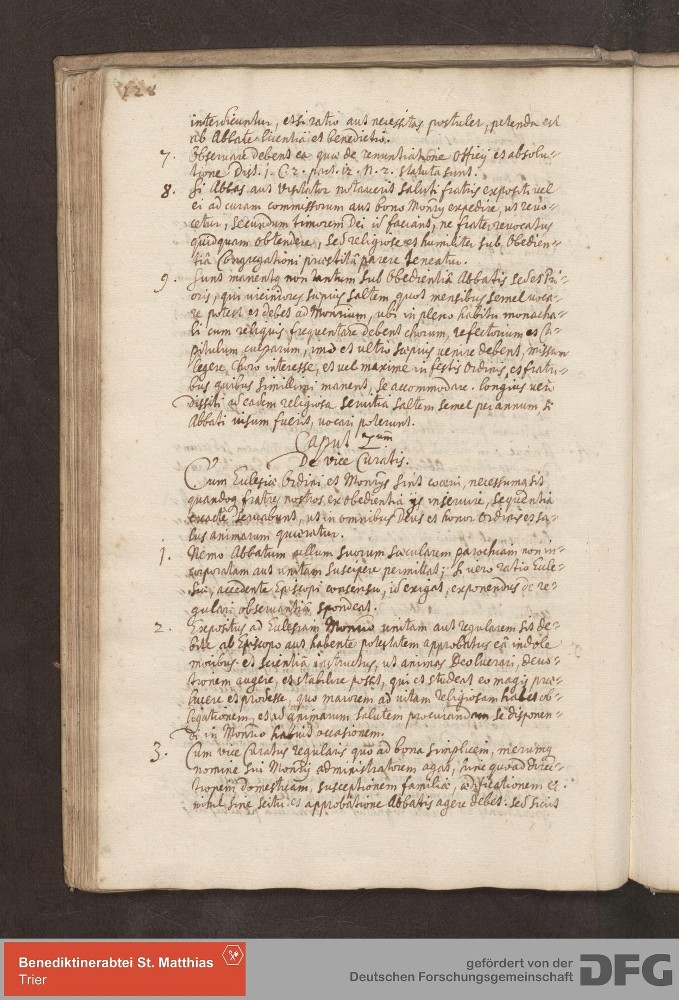 128
interdicuntur, et si ratio aut necessitas postulet, petenda est
ab Abbate licentia et benedictio.
7. Observare debent ea quae de renuntiatione officij et absolu=
tione Dist. j. C. 2. part. 12. N. 2. statuta sunt.
8. Si Abbas aut Visitator notaverit saluti fratris expositi vel
ei ad curam commissorum aut bono Monrij expedire, ut revo=
cetur, secundum timorem Dei id faciant, ne frater revocatus
quidquam obtendere, sed religiose et humiliter sub obedien=
tia Congregationi praestita parere teneatur.
9. Sunt manentq non tantum sub obedientia Abbatis sed et Pri=
oris, qui viciniores saepius saltem, quot mensibus semel voca=
re potest et debet ad Monrium, ubi in pleno habitu monacha=
li cum reliquis frequentare debent chorum, refectorium et Ca=
pitulum culparum, imo et ultro saepius venire debent, missam
legere, choro interesse, et vel maxime in festis ordinis, et fratri=
bus quibus simillimi manent, se accommodare. Longius vero
dissiti ad eadem religiosa servitia saltem semel per annum si
Abbati visum fuerit, vocari poterunt.
Caput 7um
De vice Curatis.
Cum Eclesiae Ordini et Monrijs sint, necessumq sit
quandoq fratres nostros ex obedientia ijs inservire, sequentia
exacte servabunt, ut in omnibus Deus et honor ordinis et sa=
lus animarum quaeratur.
1. Nemo Abbatum ullum suorum saecularem parochiam non in=
corporatam aut unitam suscipere permittat; si vero ratio Ecle=
siae, accedente Episcopi consensu, id exigat, exponendus de re=
gulari observantia spondeat.
2. Expositus ad Eclesiam Monrio unitam aut regularem sit de=
bite ab Episcopo aut habente potestatem approbatus ea indole
moribus et scientia instructus, ut animas Deo lucrari, devo=
tionem augere, et stabilire possit, qui et studeat eo magis prae=
lucere et prodesse, quo maiorem ad vitam religiosam habet ob=
ligationem, et ad animarum salutem procurandam se disponen=
di in Monrio habuit occasionem.
3. Cum vice Curatus regularis quo ad bona simplicem, merumq
nomine sui Monrij administratorem agat, hinc quo ad direc=
tionem domesticam, susceptionem familiae, aedificationem et
nihil sine scitu et approbatione Abbatis agere debet. sed sicut
Benediktinerabtei St. Matthias
Trier
gefördert von der
Deutschen Forschungsgemeinschaft
DFG